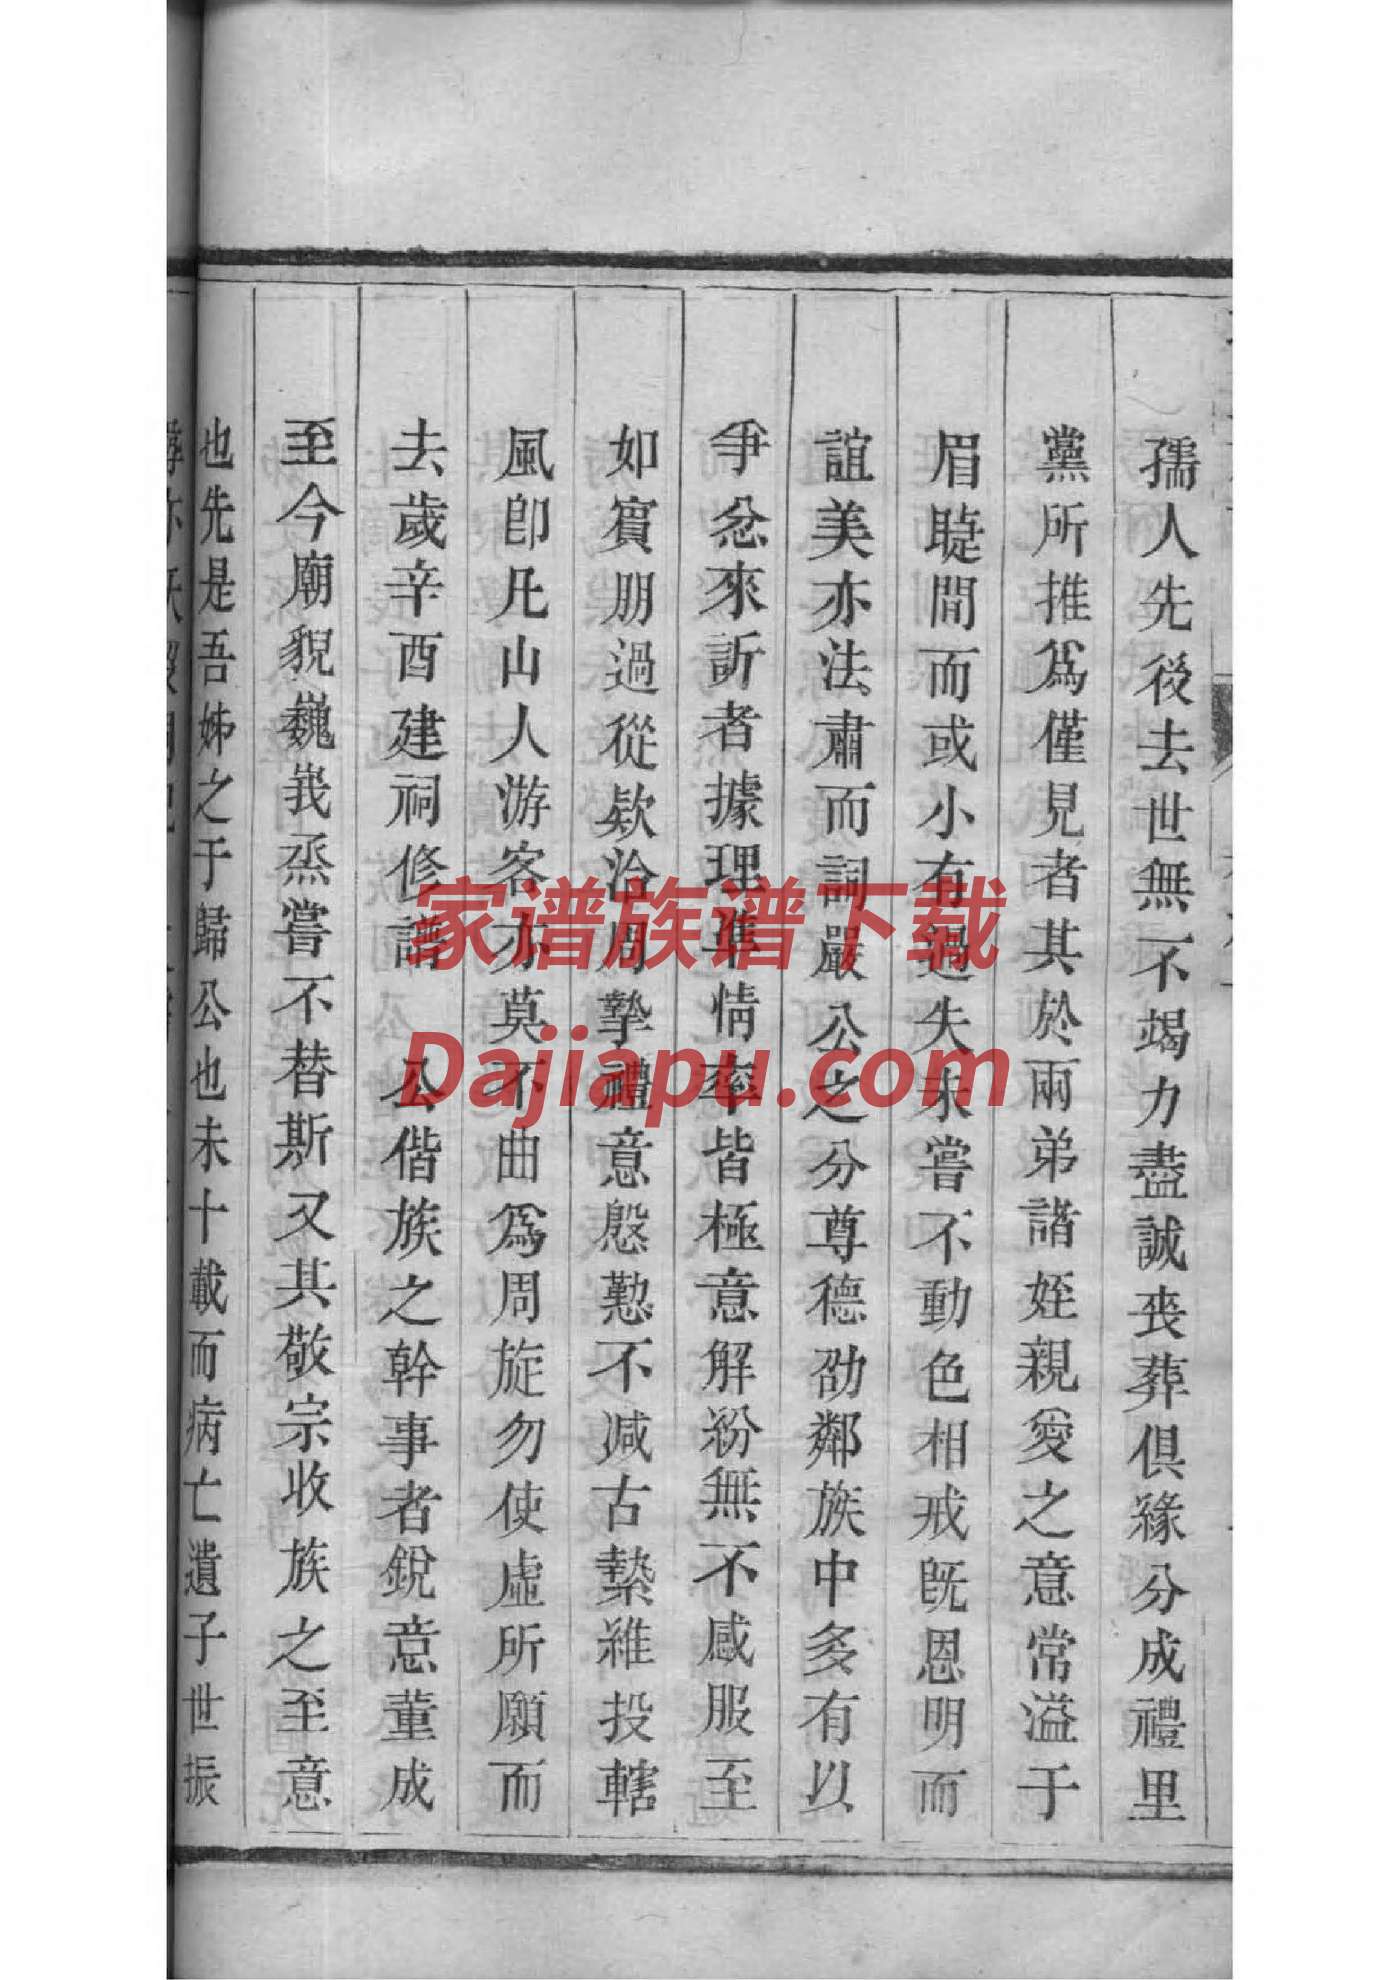 孺人先後去世無不竭力盡誠丧葬俱緣分成禮里
黨所推爲僅見者其於兩弟諧姪親愛之意常溢于
眉睫間而或小有過失未嘗不動色相戒旣恩明而
誼美亦法肅而詞嚴公之分尊德劭鄰族中多有以
爭忿來訢者據理準情率皆極意解紛無不感服至
如賓朋過從欵洽周摯禮意慇懃不减古縶維投轄
風卽凡山人游客亦莫不曲爲周旋勿使虛所願而
去歲辛酉建祠修譜 公偕族之幹事者銳意董成
至今廟貌巍峩烝嘗不替斯又其敬宗收族之至意
也先是吾姊之于歸公也未十載而病亡遺子世振
家谱族谱下载
Dajiapu.com